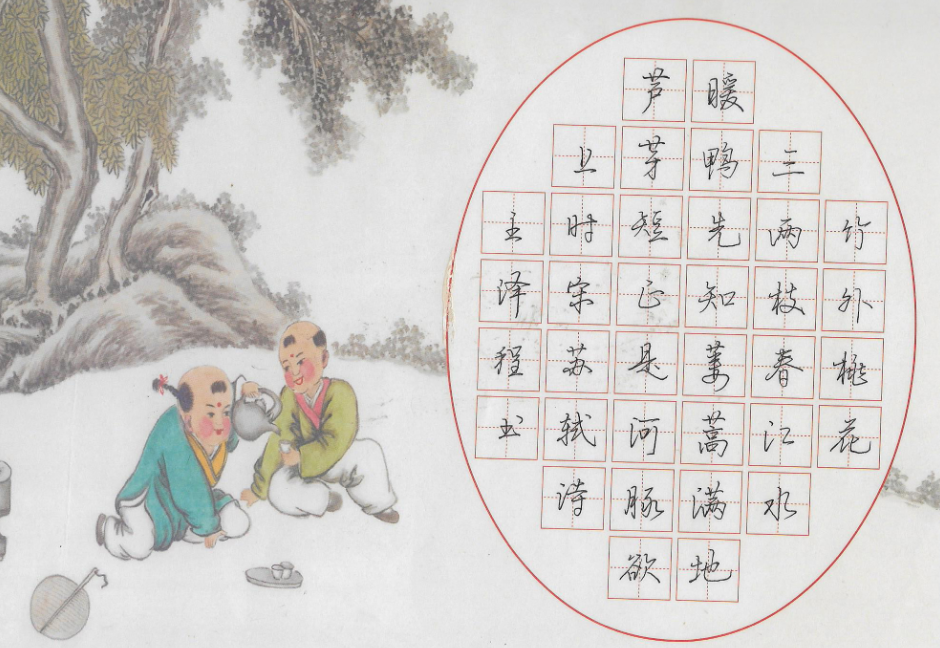 竹外桃花
三两枝春江水
暖鸭先知蒌蒿满地
芦芽短正是河豚欲
上时宋苏轼诗
主泽程书